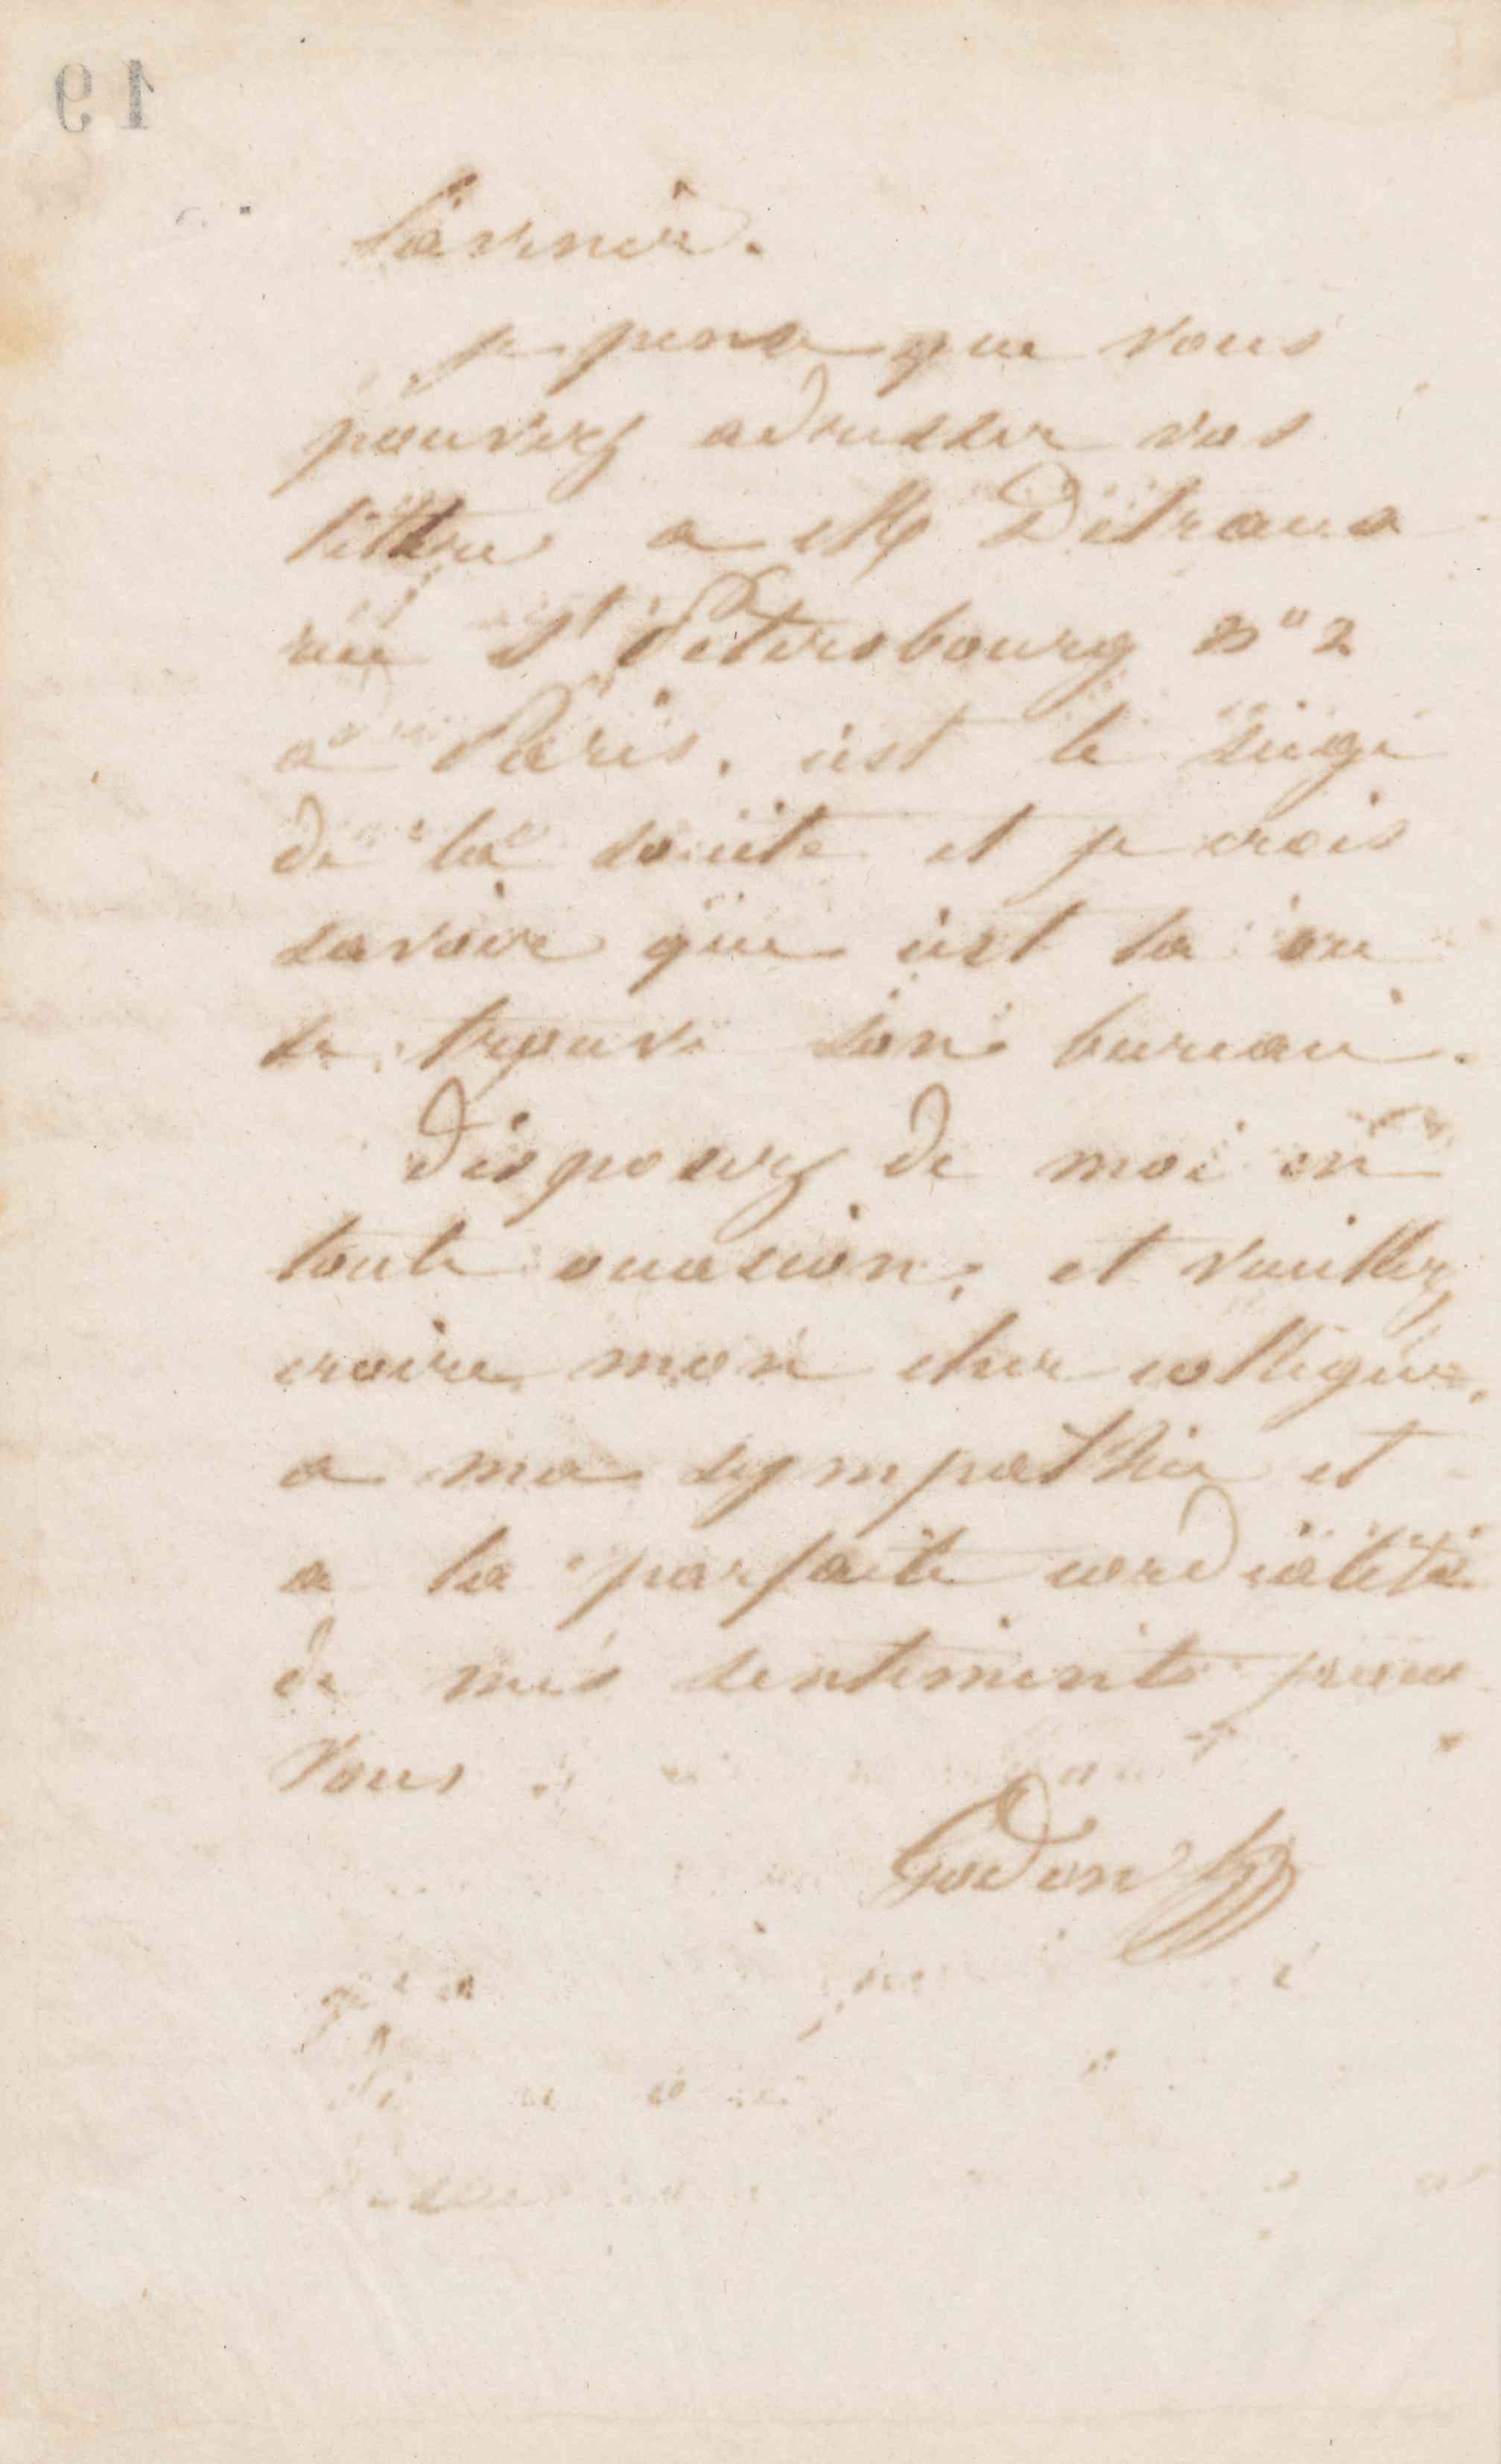 l'avenir.
je pense que vous
pouvez adresser vos
lettre a M
rue St Petersbourg n° 2
a Paris. c'est le siege
de la société et je crois
savoir que c'est la ou
se trouve son bureau.
Disposez de moi en
toute occasion, et veuillez
croire mon cher collegue,
a ma sympathie et
a la parfaite cordialité
de mes sentiments pour
Vous.
Godon
19